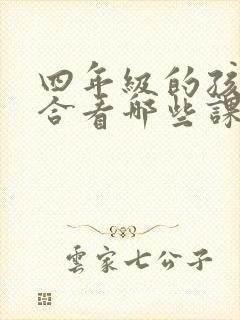 四年級的孩
合看哪些課
雲家七公子